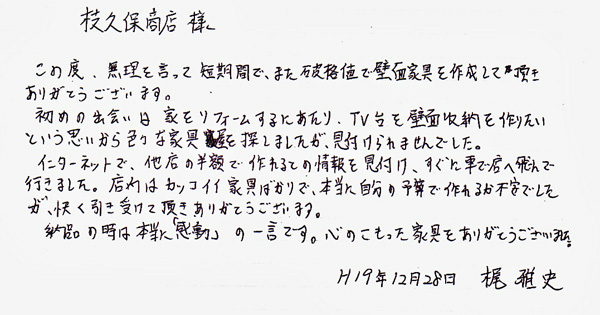 枝久保商店 様
この度、無理を言って短期間で、また破格値で壁面家具を作成して頂き
ありがとうございます。
初めの出会いは 家をリフォームするにあたり、TV台を壁面収納を作りたい
という思いから色々な家具を探しましたが、見付けられませんでした。
インターネットで、他店の半額で作れるとの情報を見付け、すぐに車で店へ飛んで
行きました。店内はカッコイイ家具ばかりで、本当に自分の予算で作れるか不安でした
が、快く引き受けて頂きありがとうございます。
納品の時は本当に「感動」の一言です。心のこもった家具をありがとうございました。
H19年12月28日 梶 雅史